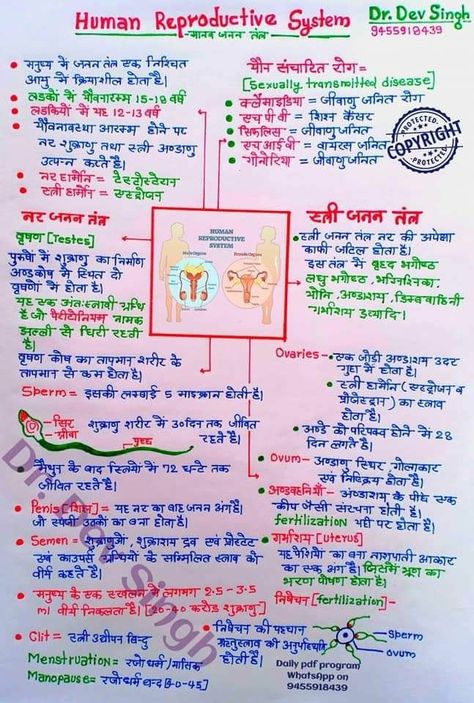 Human Reproductive System
-मानव जनन तंत्र-
Dr. Dev Singh
9455918439
• मनुष्य में जनन तंत्र एक निश्चित
आयु में क्रियाशील होता है।
• लड़कों में यौवनारम्भ 15-18 वर्ष
• लड़कियों में यह 12-13 वर्ष
• यौवनावस्था आरम्भ होने पर
नर शुक्राणु तथा स्त्री अण्डाणु
उत्पन्न करते हैं।
• नर हार्मोन = टेस्टोस्टेरोन
• स्त्री हार्मोन = एस्ट्रोजन
यौन संचारित रोग =
[Sexually transmitted disease]
• क्लैमाइडिया = जीवाणु जनित रोग
• एच पी वी = शिश्न कैंसर
• सिफलिस = जीवाणु जनित
• एच आई वी = वायरस जनित
• गोनोरिया = जीवाणु जनित
PROTECTED
COPYRIGHT
PROTECTED
नर जनन तंत्र
वृषण [Testes]
पुरुषों में शुक्राणु का निर्माण
अण्डकोष में स्थित दो
वृषणों में होता है।
यह एक अंतःस्त्रावी ग्रन्थि
है जो पैरीटोनियम नामक
झिल्ली से घिरी रहती
है।
वृषण कोष का तापमान शरीर के
तापमान से कम होता है।
Sperm = इसकी लम्बाई 5 माइक्रान होती है।
सिर
ग्रीवा
पुच्छ
शुक्राणु शरीर में 30 दिन तक जीवित
रहते हैं।
• मैथुन के बाद स्त्रियों में 72 घन्टे तक
जीवित रहते हैं।
• Penis [शिश्न] = यह नर का बाह्य जनन अंग है।
जो स्पंजी ऊतकों का बना होता है।
• Semen = शुक्राणुओं, शुक्राशय द्रव एवं प्रोस्टेट
एवं काउपर्स ग्रन्थियों के सम्मिलित स्त्राव को
वीर्य कहते हैं।
• मनुष्य के एक स्खलन में लगभग 2.5 - 3.5
ml वीर्य निकलता है। [20-40 करोड़ शुक्राणु]
• Clit = स्त्री उद्दीपन बिन्दु
Menstruation = रजोधर्म / मासिक
Manopause = रजोधर्म बन्द
HUMAN
REPRODUCTIVE
SYSTEM
स्त्री जनन तंत्र
• स्त्री जनन तंत्र नर की अपेक्षा
काफी जटिल होता है।
इस तंत्र में वृहद भगोष्ठ
लघु भगोष्ठ, भगशिश्निका,
योनि, अण्डाशय, डिम्बवाहिनी
गर्भाशय इत्यादि।
Ovaries - • एक जोड़ी अण्डाशय उदर
गुहा में होती है।
• स्त्री हार्मोन (एस्ट्रोजन व
प्रोजेस्ट्रान) का स्त्राव
होता है।
• अण्डे को परिपक्व होने में 28
दिन लगते हैं।
• Ovum - अण्डाणु स्थिर, गोलाकार
एवं निष्क्रिय होता है।
• अण्डवाहनियाँ - अण्डाशय के पीछे एक
कीप जैसी संरचना होती है।
fertilization यहीं पर होता है।
• गर्भाशय [uterus]
यह पेशियों का बना नाशपाती आकार
का एक अंग है। जिसमें भ्रूण का
भरण पोषण होता है।
• निषेचन [fertilization]-
• निषेचन की पहचान
ऋतुस्त्राव की अनुपस्थिति
होती है।
Sperm
ovum
Daily pdf program
WhatsApp on
9455918439
Dr. Dev Singh